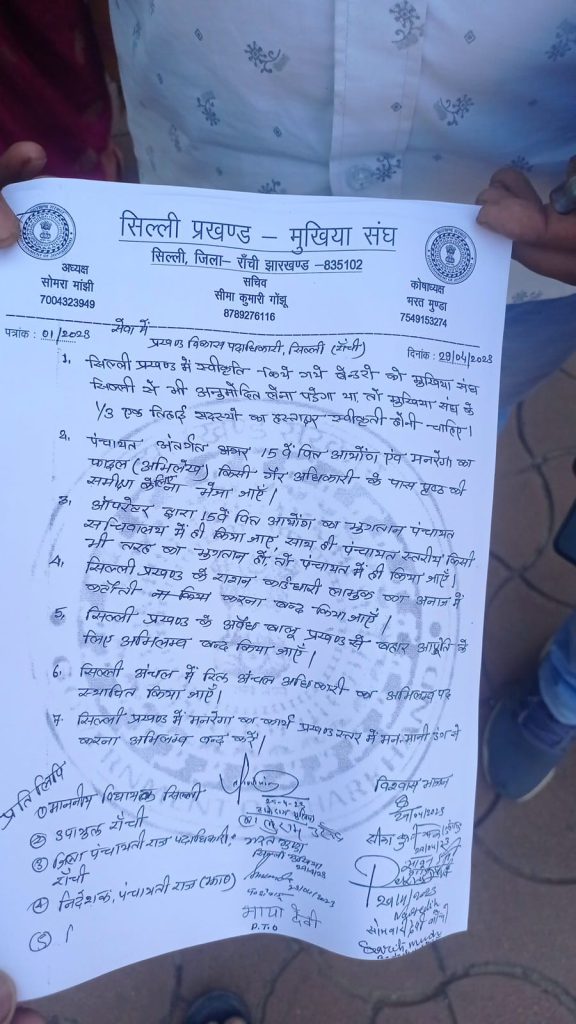 सिल्ली प्रखण्ड – मुखिया संघ
सिल्ली, जिला- राँची झारखण्ड -835102
अध्यक्ष
सोमरा मांझी
7004323949
सचिव
सीमा कुमारी गोंझू
8789276116
कोषाध्यक्ष
भरत मुण्डा
7549153274
पत्रांक : 01/2023
दिनांक : 29/04/2023
सेवा में
प्रखण्ड विकास पदाधिकारी, सिल्ली (राँची)
1. सिल्ली प्रखण्ड में स्वीकृति किये गये वेंडरो को मुखिया संघ
सिल्ली से भी अनुमोदित लेना पड़ेगा या तो मुखिया संघ के
1/3 एक तिहाई सदस्यो का हस्ताक्षर स्वीकृती होनी चाहिए।
2. पंचायत अंतर्गत अगर 15 वें वित्त आयोग एवं मनरेगा का
फाइल (अभिलेख) किसी गैर अधिकारी के पास की
समीक्षा ना भेजा जाएँ।
3. ऑपरेटर द्वारा 15वें वित्त आयोग का भुगतान पंचायत
सचिवालय में ही किया जाए, साथ ही पंचायत स्तरीय किसी
भी तरह का भुगतान हो तो पंचायत में ही किया जाएँ।
4. सिल्ली प्रखण्ड के राशन कार्डधारी लाभुक का अनाज में
कटौती करना बन्द किया जाएँ।
5. सिल्ली प्रखण्ड के अवैध बालू प्रखण्ड से बाहर आपूर्ति के
लिए अभिलम्ब बन्द किया जाएँ।
6. सिल्ली अंचल में रिक्त अंचल अधिकारी का अभिलम्ब पद
स्थापित किया जाएँ।
7. सिल्ली प्रखण्ड में मनरेगा का कार्य प्रखण्ड स्तर में मन-मानी ढंग से
करना अभिलम्ब बन्द करें।
प्रतिलिपि
① माननीय विधायक सिल्ली
② उपायुक्त राँची
③ जिला पंचायती राज पदाधिकारी,
राँची
④ निदेशक, पंचायती राज (झा०)
⑤
29/04/2023
29/04/2023
माया देवी
P.T.O